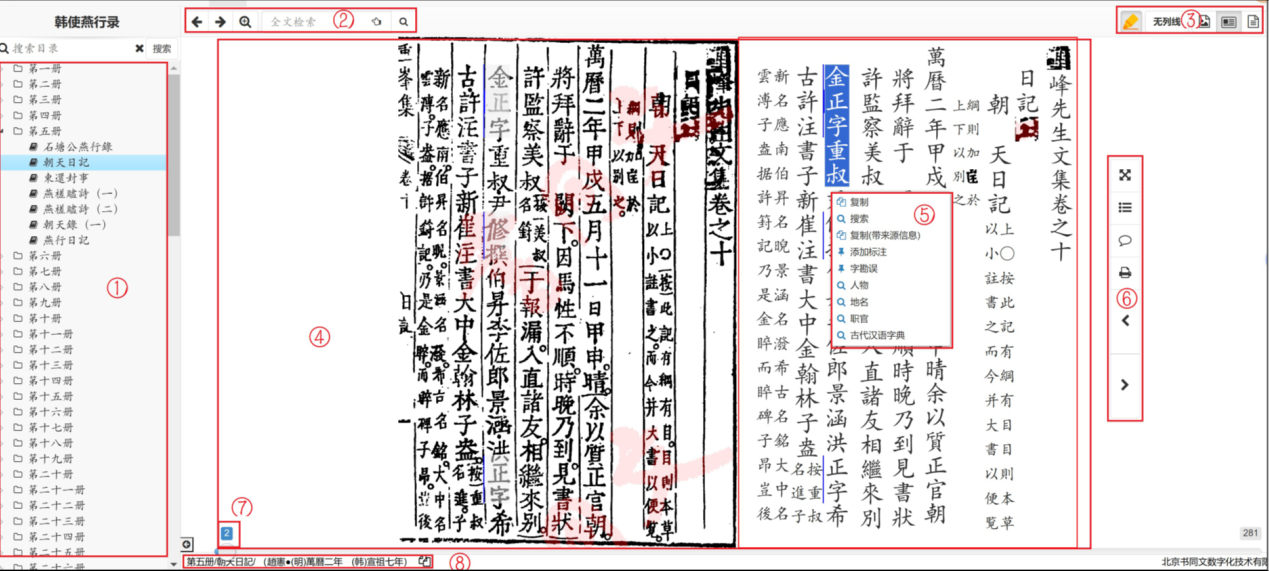 韩使燕行录
搜索目录
搜索
第一册
第二册
第三册
第四册
第五册
石塘公燕行錄
朝天日記
東還封事
燕槎贐詩（一）
燕槎贐詩（二）
朝天錄（一）
燕行日記
第六册
第七册
第八册
第九册
第十册
第十一册
第十二册
第十三册
第十四册
第十五册
第十六册
第十七册
第十八册
第十九册
第二十册
第二十一册
第二十二册
第二十三册
第二十四册
第二十五册
第二十六册
①
全文检索
②
无列线
③
④
先生文集卷之十
朝 天日記
上〇按此記有綱有目目則本草
以小註書之而今并大書以便覽
綱則加 於
上下以別之
萬曆二年甲戌五月十一日甲申晴余以質正官朝
將拜辭于 闕下因馬性不順時晚乃到見書狀
許監察美叔 按美叔名篈 于報漏入直諸友相繼來別
金正字重叔尹修撰伯昇李佐郎景涵洪正字希
古許注書子新崔注書大中金翰林子盎 按重叔名進子
新名應南伯昇名晛景涵名潑希古名銘大中名
雲溥子盎据許篈記乃是金睟而睟碑子昂豈後
峯集 卷十
日記
峰先生文集卷之十
日記
朝 天日記
上〇按此記有綱有目目則本草
以小註書之而今并大書以便覽
綱則加 於
上下以別之
萬曆二年甲戌 申晴余以質正官朝
將拜辭于 順時晚乃到見書狀
許監察美叔 入直諸友相繼來別
金正字重叔 佐郎景涵洪正字希
古許注書子新崔注書大中金翰林子盎 按重叔名進子
新名應南伯昇名晛景涵名潑希古名銘大中名
雲溥子盎据許篈記乃是金睟而睟碑子昂豈後
复制
搜索
复制(带来源信息)
添加标注
字勘误
人物
地名
职官
古代汉语字典
⑤
⑥
⑦
2
281
第五册/朝天日記/ （趙憲●(明)萬曆二年 (韩)宣祖七年）
⑧
北京书同文数字化技术有限